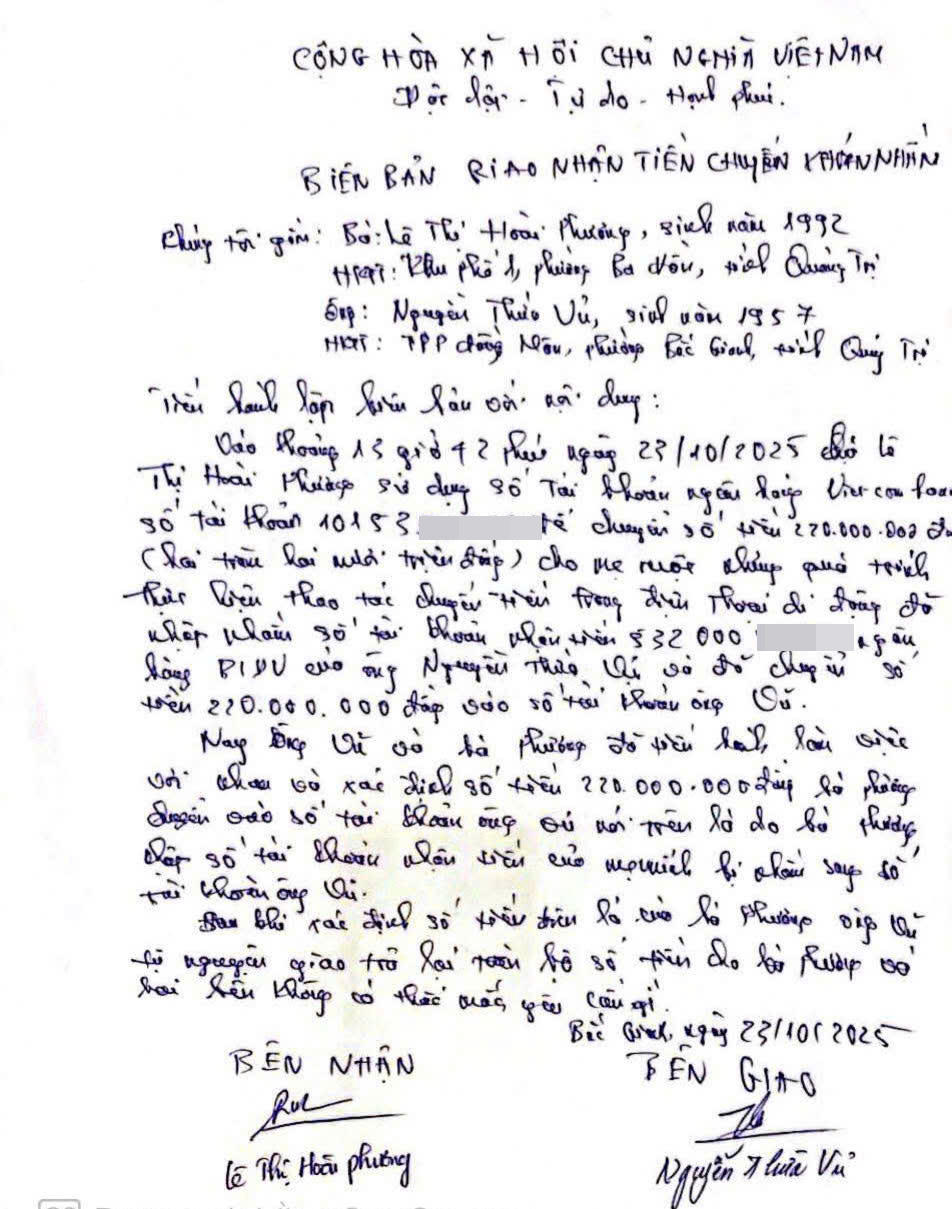 CỘNG HÒA XÃ HỘI CHỦ NGHĨA VIỆT NAM
Độc lập - Tự do - Hạnh phúc.
BIÊN BẢN GIAO NHẬN TIỀN CHUYỂN KHOẢN NHẦM
Chúng tôi gồm: Bà: Lê Thị Hoài Phương, sinh năm 1992
HKTT: Khu phố 1, phường Ba Đồn, tỉnh Quảng Trị
Ông: Nguyễn Thừa Vũ, sinh năm 1957
HKTT: TDP phường Bắc Gianh, tỉnh Quảng Trị
Tiến hành lập biên bản với nội dung:
Vào khoảng 13 giờ 42 phút ngày 23/10/2025 chị Lê
Thị Hoài Phương sử dụng số tài khoản ngân hàng Vietcombank
số tài khoản 10153 để chuyển số tiền 220.000.000 đ
(hai trăm hai mươi triệu đồng) cho mẹ ruột nhưng quá trình
thực hiện thao tác chuyển tiền trong điện thoại di động đã
nhập nhầm số tài khoản nhận tiền 532000 ngân
hàng BIDV của ông Nguyễn Thừa Vũ và đã chuyển số
tiền 220.000.000 đồng vào số tài khoản ông Vũ.
Nay ông Vũ và bà Phương đã tiến hành làm việc
với nhau và xác định số tiền 220.000.000 đồng bà Phương
chuyển vào số tài khoản ông Vũ nói trên là do bà Phương
nhập số tài khoản nhận tiền của mẹ mình bị nhầm sang số
tài khoản ông Vũ.
Sau khi xác định số tiền trên là của bà Phương ông Vũ
tự nguyện giao trả lại toàn bộ số tiền cho bà Phương và
hai bên không có thắc mắc, yêu cầu gì.
Bắc Gianh, ngày 23/10/2025
BÊN NHẬN
BÊN GIAO
Lê Thị Hoài Phương
Nguyễn Thừa Vũ